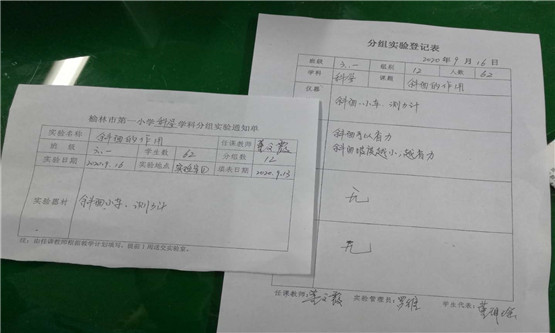 榆林市第一小学科学学科分组实验通知单
实验名称 斜面的作用 任课教师 董文霞
班 级 三.一 学生数 62 分组数 12
实验日期 2020.9.16 实验地点 实验室 填表日期 2020.9.13
实验器材 斜面,小车,测力计
分组实验登记表
2020年9月16日
班级 三.一 组别 12 人数 62
学科 科学 课题 斜面的作用
仪器
斜面,小车,测力计
斜面可以省力
斜面坡度越小,越省力
无
无
任课教师: 董文霞 实验管理员: 罗雅 学生代表: